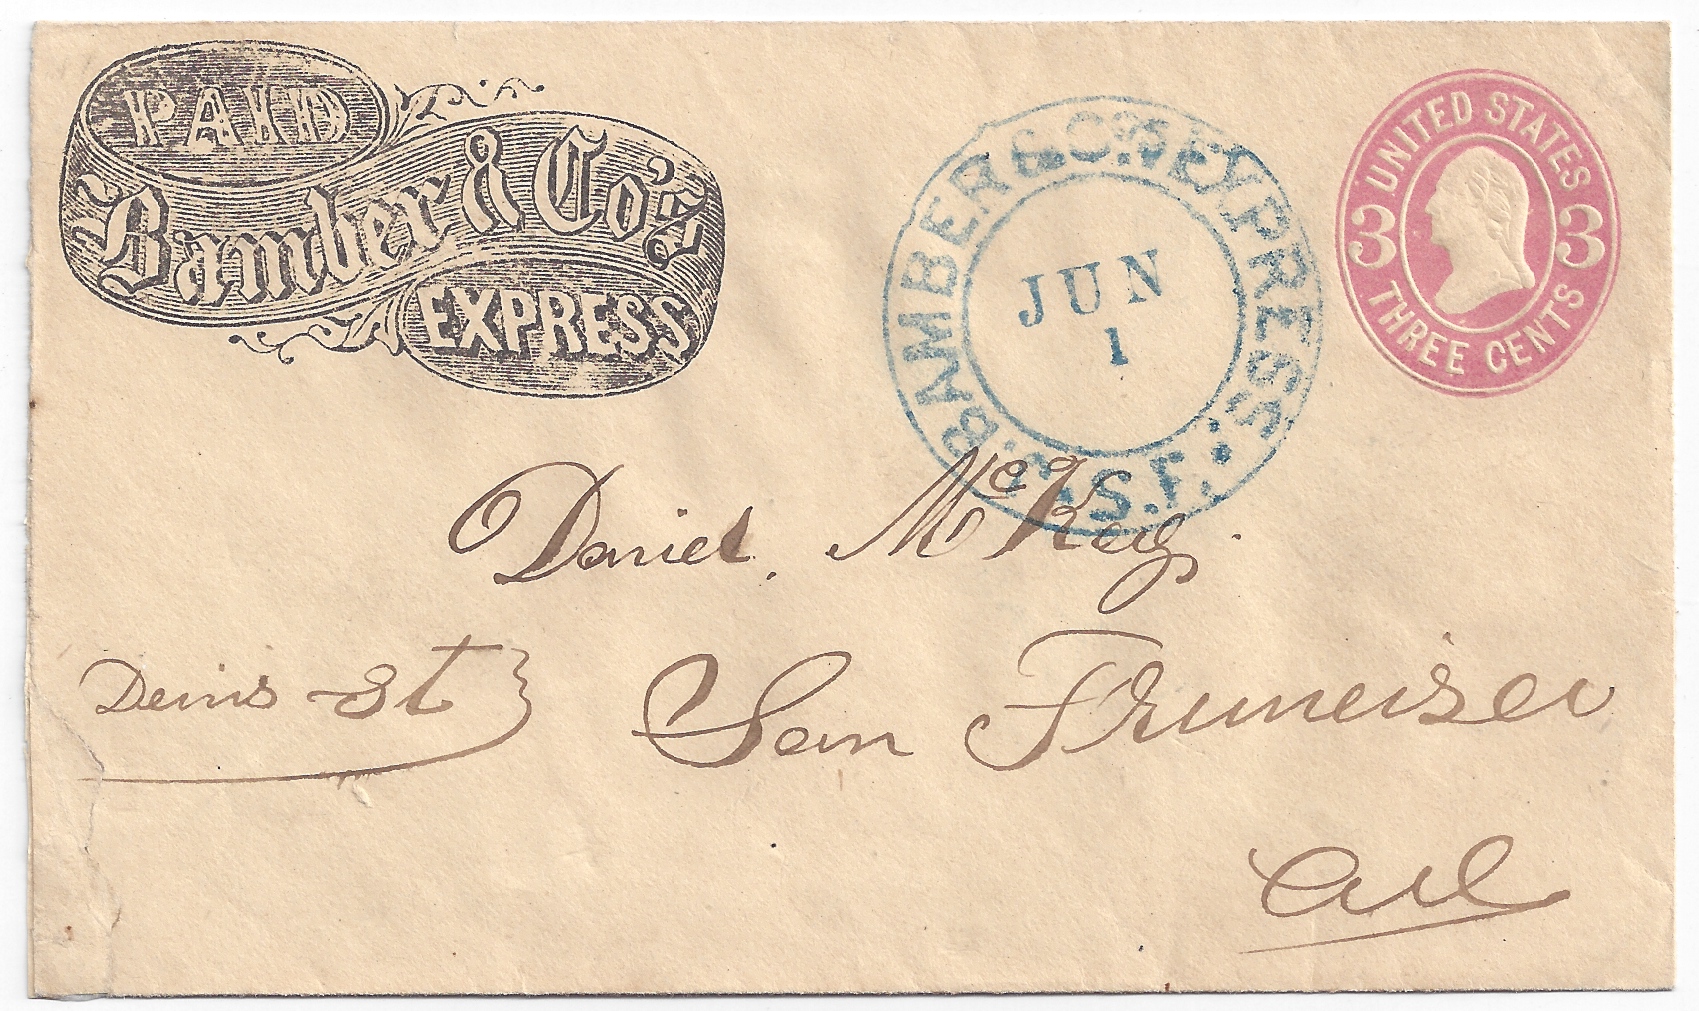 PAID
Bamber & Co's
EXPRESS
BAMBER & Co's EXPRESS
JUN
1
S.F.
UNITED STATES
3 3
THREE CENTS
Daniel. McKay.
Deins St
San Francisco
Cal